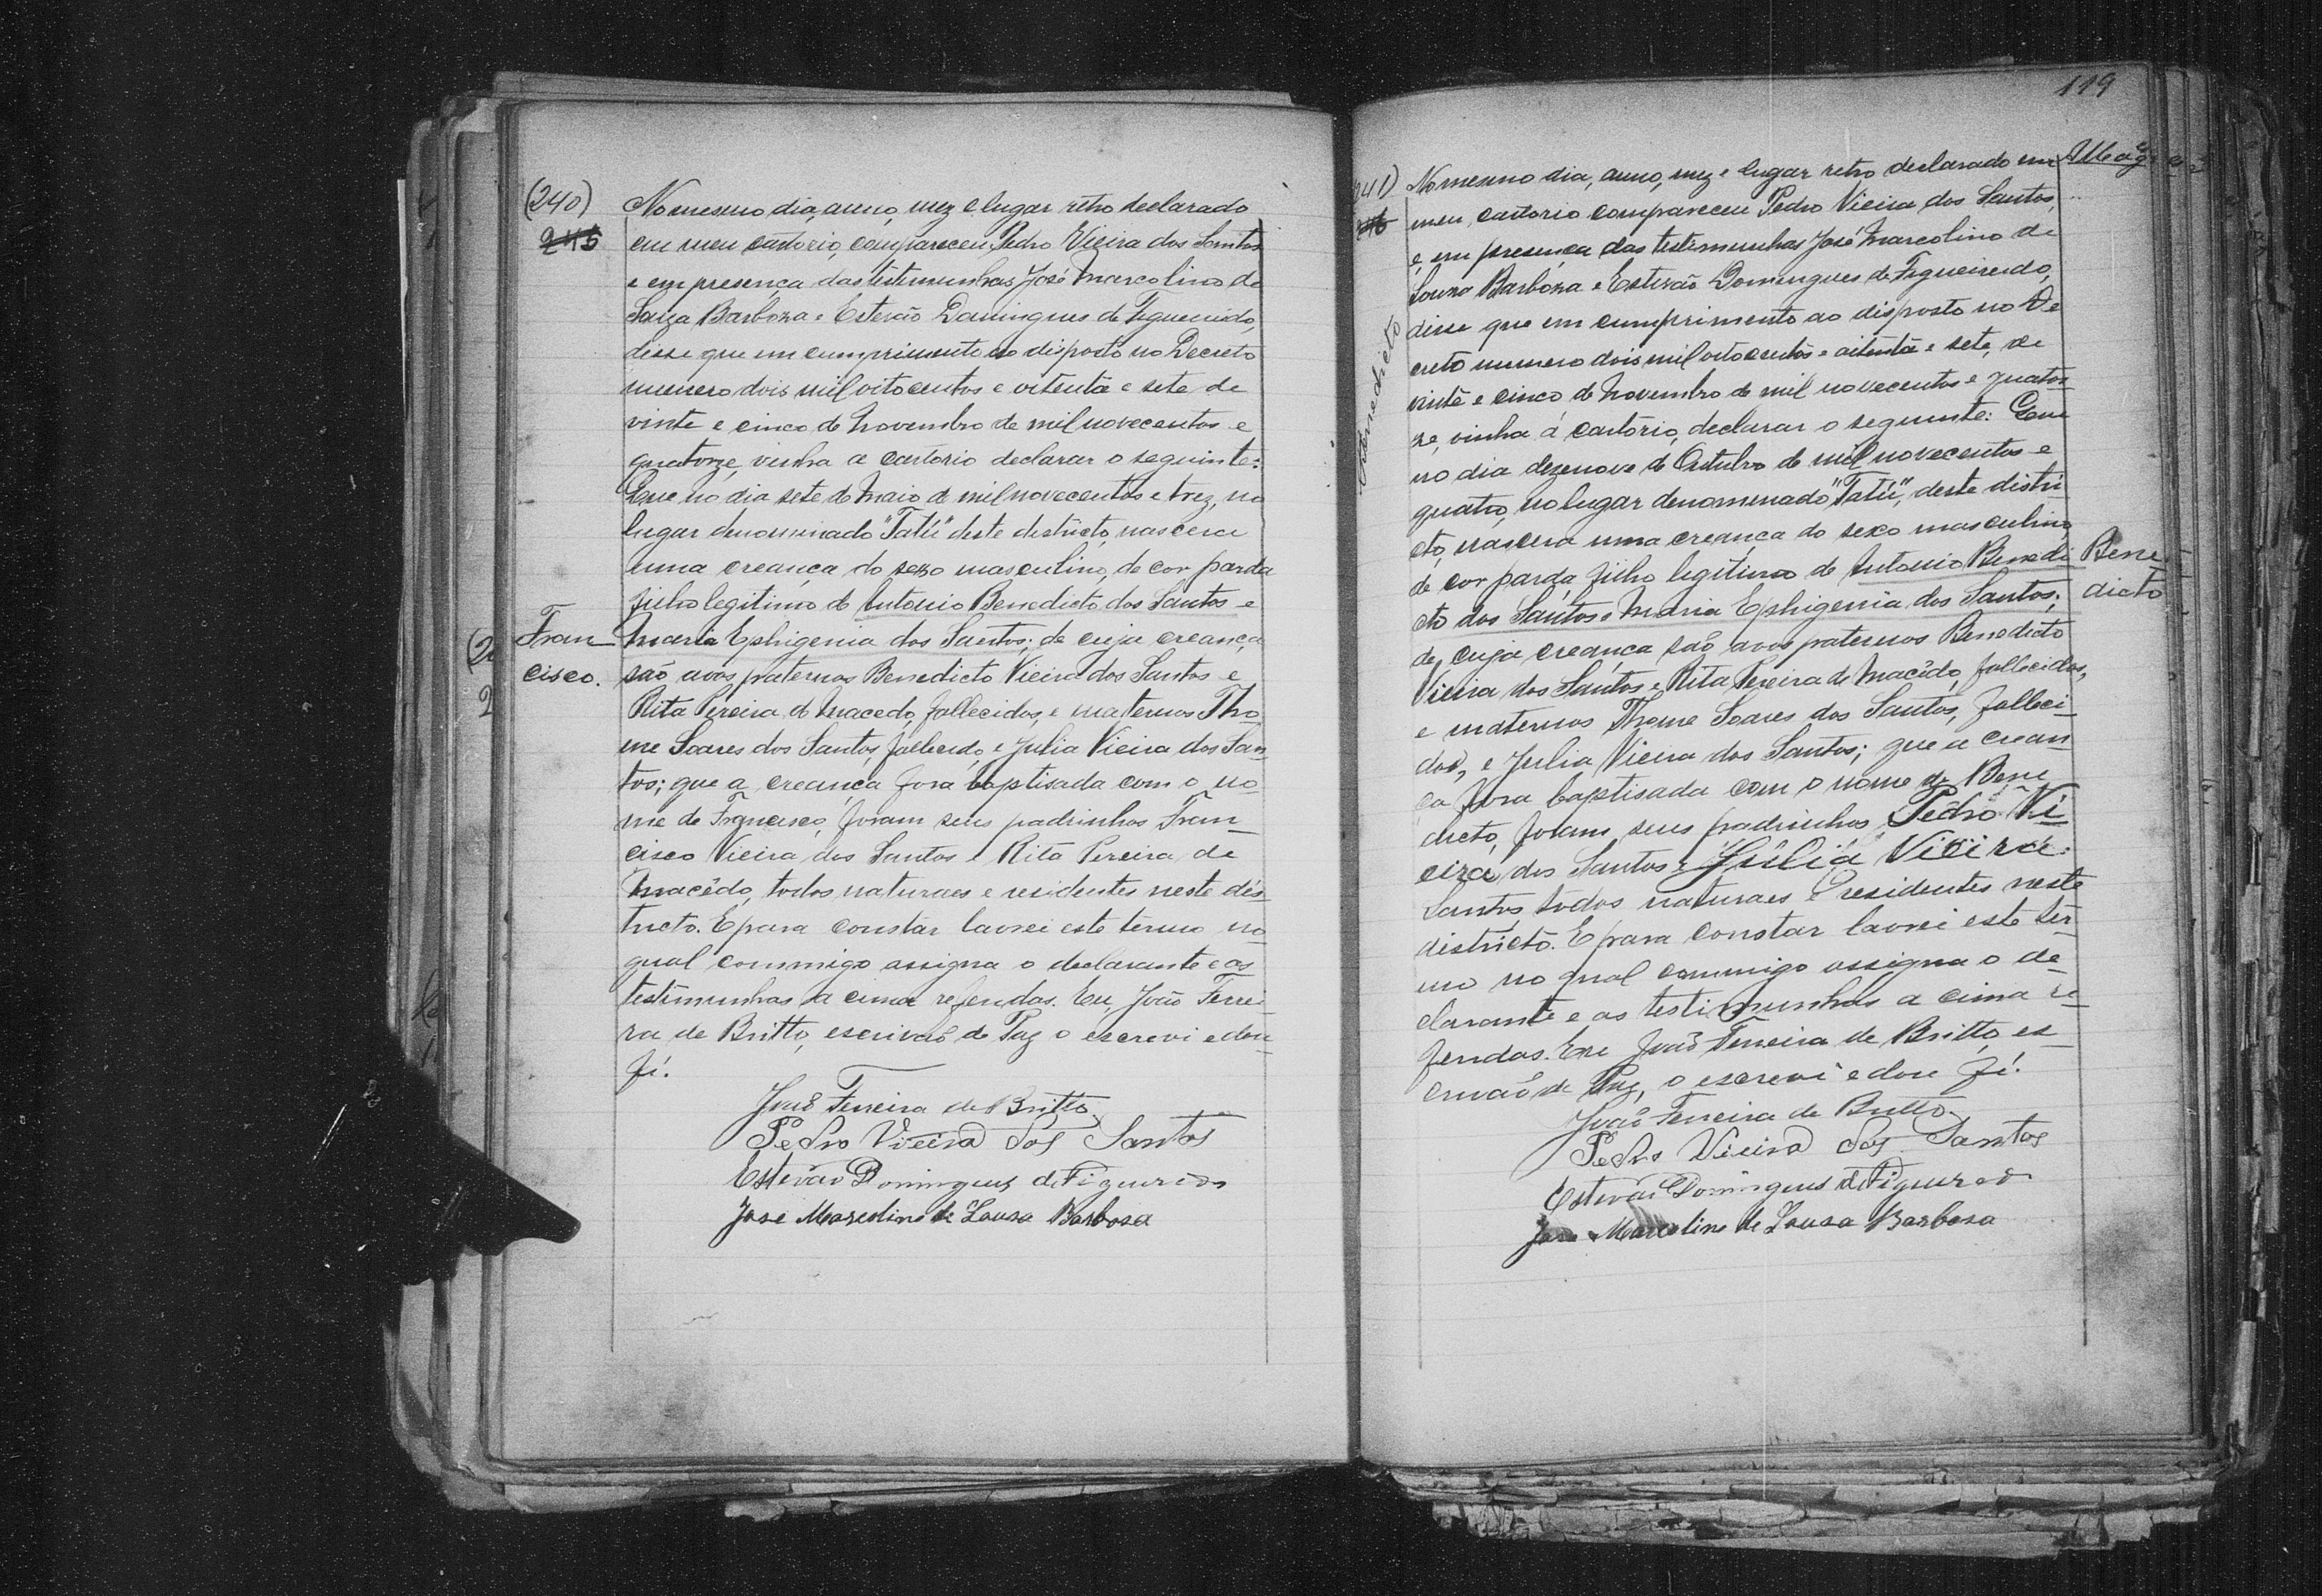 (240)
245
Fran
cisco.
No mesmo dia, anno, mez e lugar retro declarado
em meu cartorio, compareceu Pedro Vieira dos Santos
e em presença das testimunhas José Marcolino de
Souza Barboza e Estevão Domingues de Figueiredo,
disse que em cumprimento ao disposto no Decreto
numero dois mil oitocentos e oitenta e sete de
vinte e cinco de Novembro de mil novecentos e
quatorze, vinha a cartorio declarar o seguinte:
Que no dia sete de Maio de mil novecentos e trez, no
lugar denominado "Tatú" deste districto, nascera
uma creança do sexo masculino, de cor parda
filho legitimo de Antonio Benedicto dos Santos e
Maria Ephigenia dos Santos; de cuja creança
são avos paternos Benedicto Vieira dos Santos e
Rita Pereira de Macedo, fallecidos, e maternos Tho
me Soares dos Santos, fallecido, e Julia Vieira dos San
tos; que a creança fora baptisada com o no
me de Francisco, foram seus padrinhos Fran
cisco Vieira dos Santos e Rita Pereira de
Macêdo, todos naturaes e residentes neste dis
tricto. E para constar lavrei este termo no
qual commigo assigna o declarante e as
testimunhas a cima referidas. Eu, João Ferrei
ra de Britto, escrivão de Paz o escrevi e dou
fé.
João Ferreira de Britto
Pedro Vieira dos Santos
Estevão Domingues de Figueredo
Jose Marcolino de Sousa Barbosa
119
241)
Benedicto
Bene
dicto
No mesmo dia, anno, mez e lugar retro declarado em
meu cartorio compareceu Pedro Vieira dos Santos,
e, em presença das testimunhas José Marcolino de
Souza Barboza e Estevão Domingues de Figueiredo,
disse que em cumprimento ao disposto no De
creto numero dois mil oito centos e oitenta e sete, de
vinte e cinco de Novembro de mil novecentos e quator
ze, vinha á cartorio, declarar o seguinte: Que
no dia dezenove de Outubro de mil novecentos e
quatro, no lugar denomenado "Tatú", deste distri
cto, nascera uma creança do sexo masculino,
de cor parda, filho legitimo de Antonio Benedi
cto dos Santos e Maria Ephigenia dos Santos;
de cuja creança são avos paternos Benedicto
Vieira dos Santos e Rita Pereira de Macêdo, fallecidos,
e maternos Thome Soares dos Santos, falleci
dos, e Julia Vieira dos Santos; que a crean
ça fora baptisada com o nome de Bene
dicto, foram seus padrinhos Pedro Vi
eira dos Santos e Julia Vieira
Santos, todos naturaes e residentes neste
districto. E para constar lavrei este ter
mo no qual commigo assigna o de
clarante e as testimunhas a cima re
feridas. Eu João Ferreira de Britto, es
crivão de Paz, o escrevi e dou fé.
João Ferreira de Britto
Pedro Vieira dos Santos
Estevão Domingues de Figueredo
Jose Marcolino de Sousa Barbosa